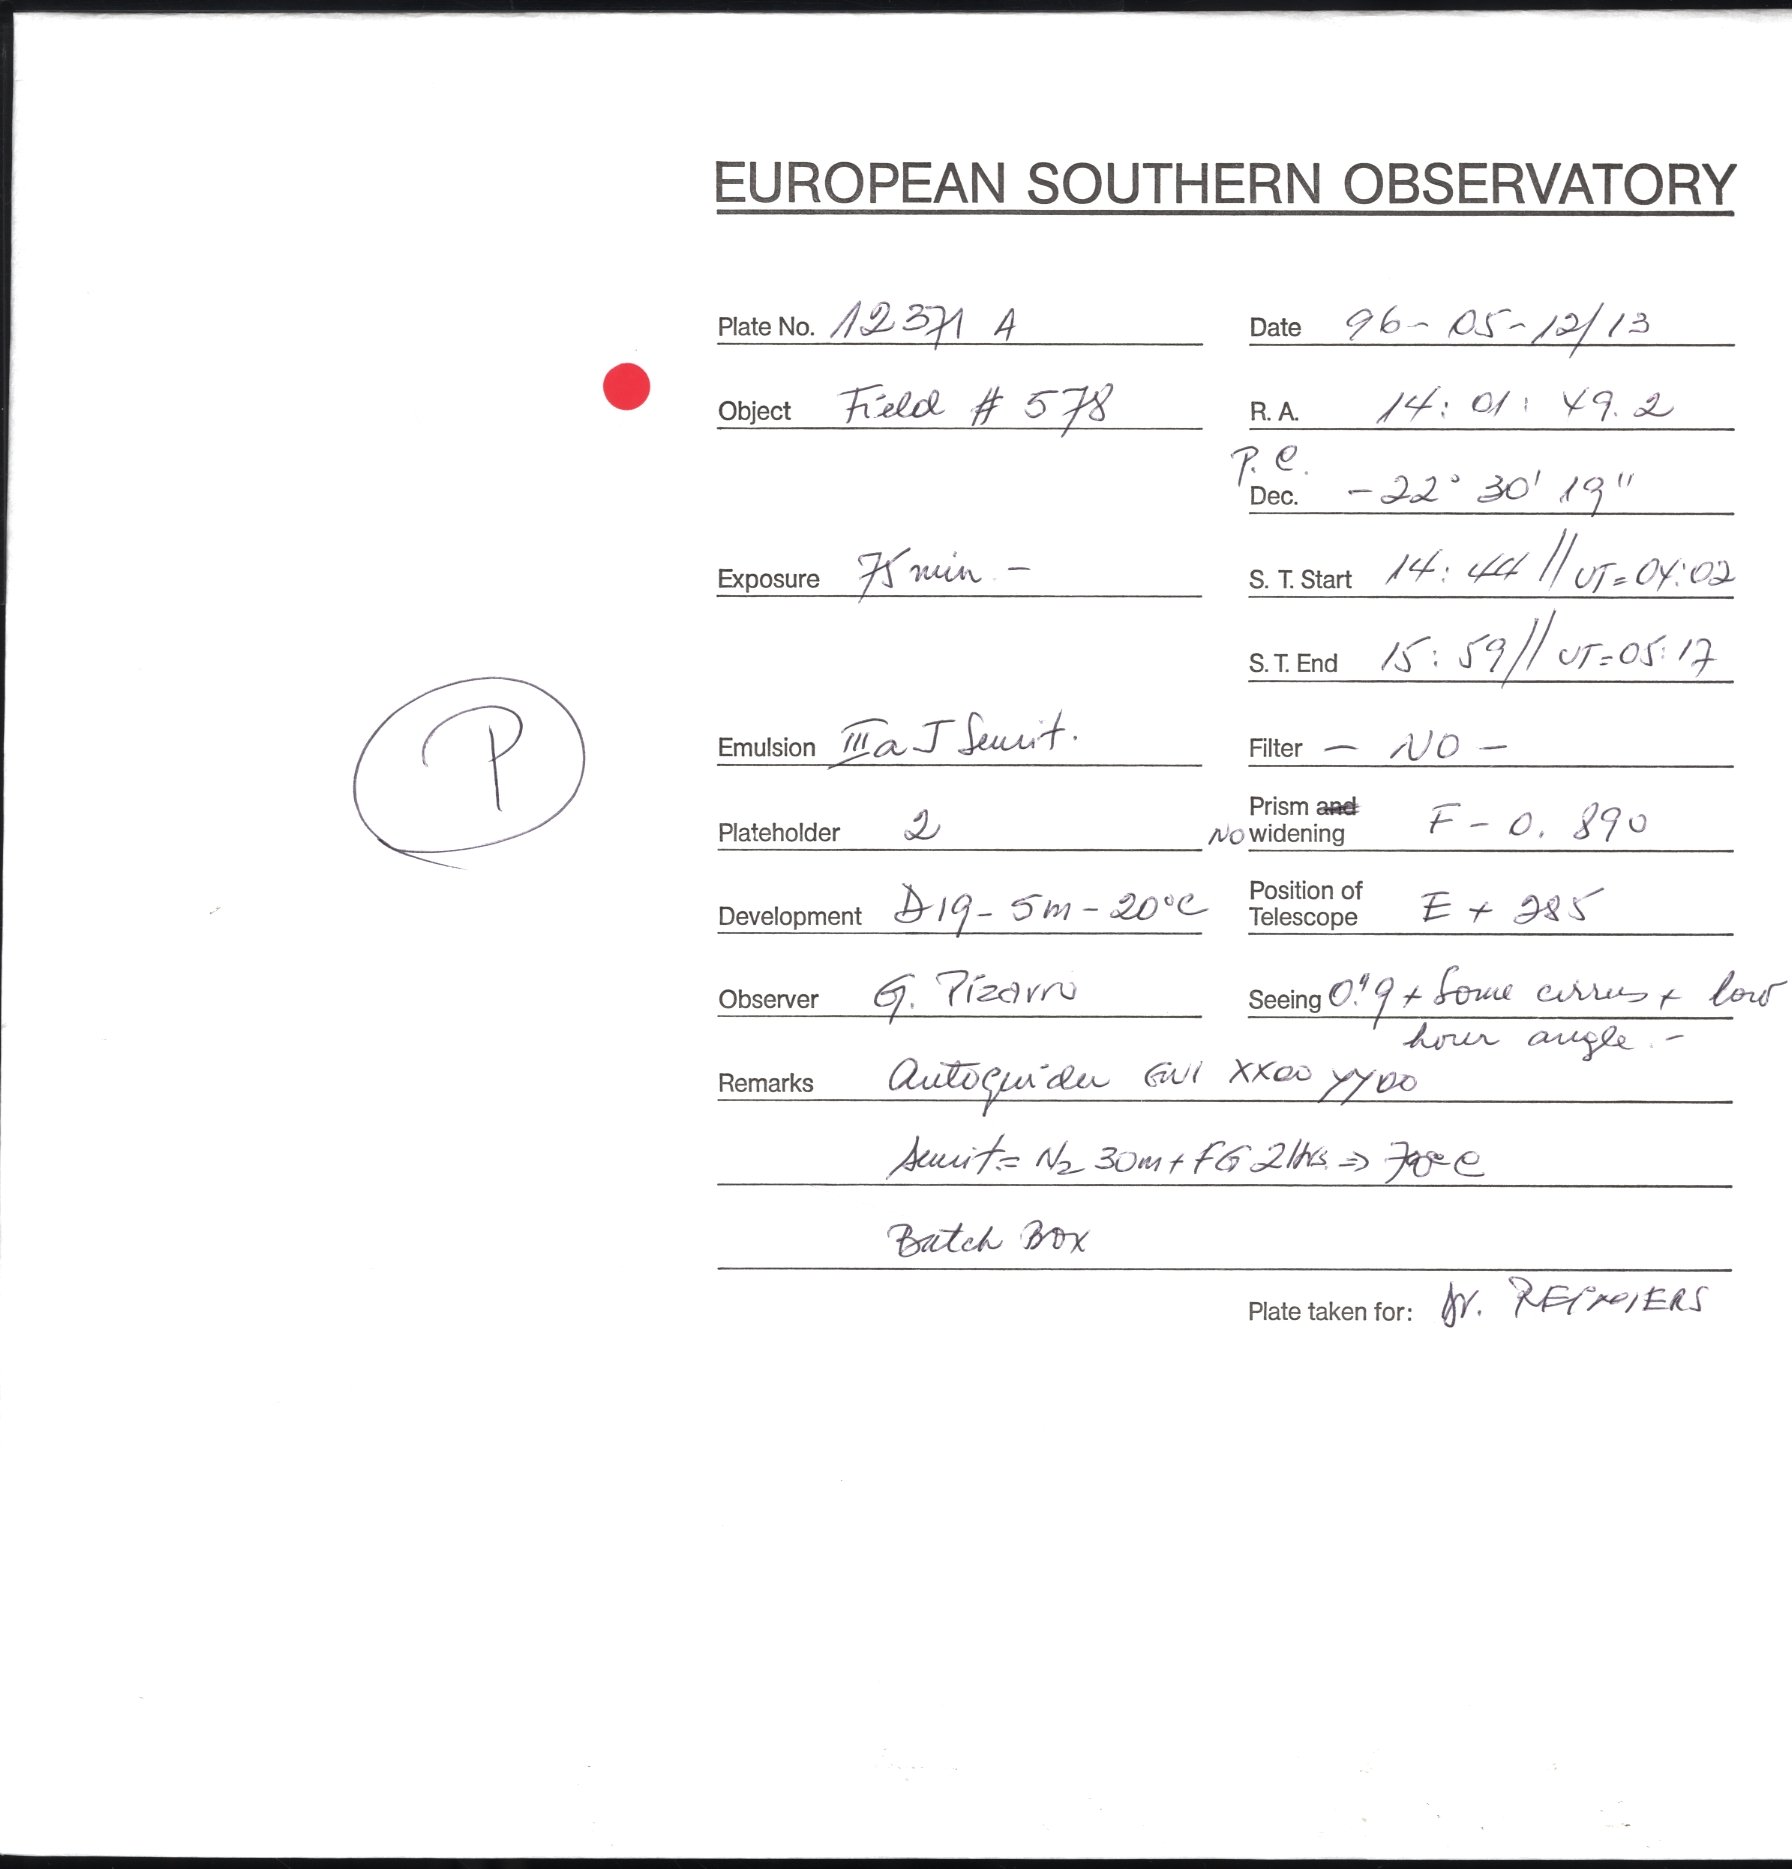 EUROPEAN SOUTHERN OBSERVATORY
Plate No. 12371 A
Date 96-05-12/13
Object Field # 578
R. A. 14: 01: 49.2
P. C.
Dec. -22° 30' 19"
Exposure 75 min -
S. T. Start 14: 44 // UT=04:02
S. T. End 15: 59 // UT=05:17
P
Emulsion IIIa J Sensit.
Filter - NO -
Plateholder 2
Prism and
NO widening F-0. 890
Development D19-5m-20°C
Position of
Telescope E + 285
Observer G. Pizarro
Seeing 0."9 + Some cirrus + low
hour angle -
Remarks Autoguider XX00 YY00
Sensit= N2 30m + FG 2Hrs => °C
Batch Box
Plate taken for: Dr. REIMERS